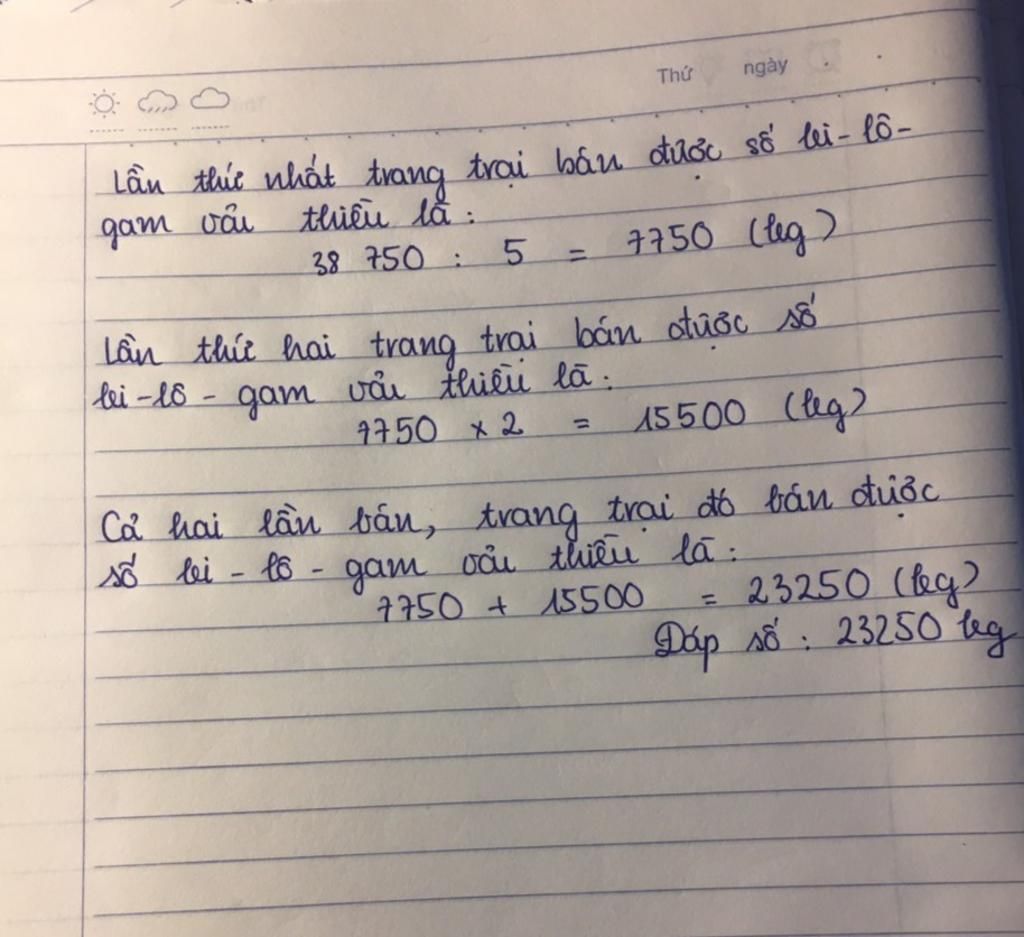 Thứ ngày
Lần thứ nhất trang trại bán được số ki-lô-
gam vải thiều là:
38 750 : 5 = 7750 (kg)
Lần thứ hai trang trại bán được số
ki-lô-gam vải thiều là:
7750 x 2 = 15500 (kg)
Cả hai lần bán, trang trại đó bán được
số ki-lô-gam vải thiều là:
7750 + 15500 = 23250 (kg)
Đáp số: 23250 kg